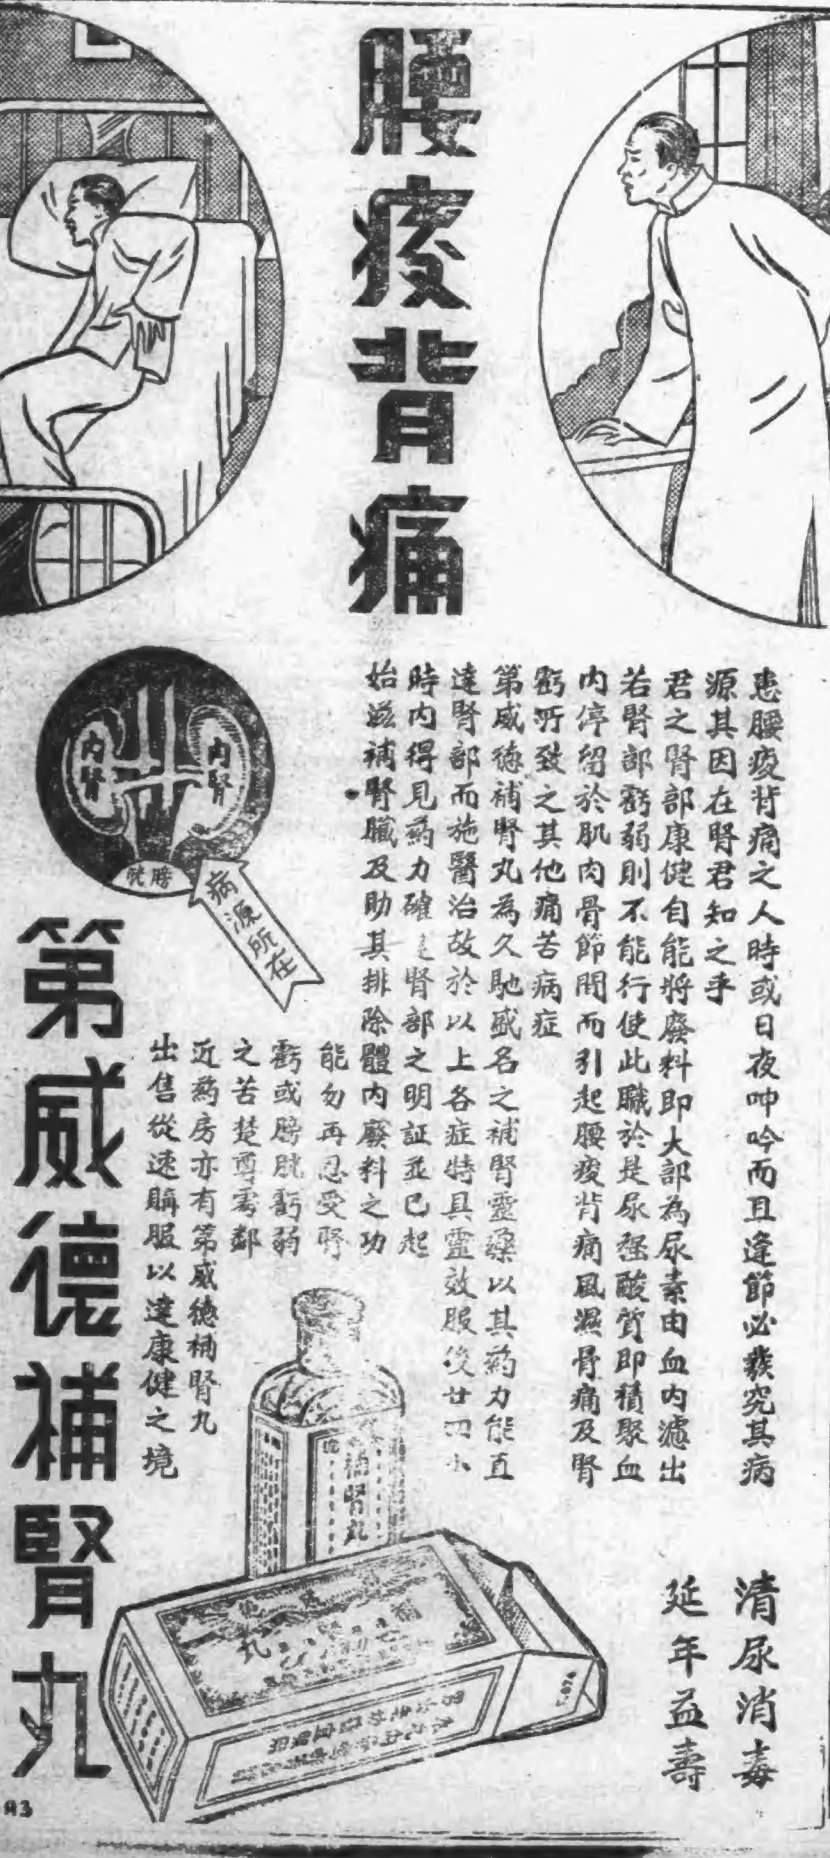 腰痠背痛
患腰痠背痛之人時或日夜呻吟而且逢節必發究其病
源其因在腎君知之乎
君之腎部康健自能將廢料即大部為尿素由血內濾出
若腎部虧弱則不能行使此職於是尿强酸質即積聚血
內停留於肌肉骨節間而引起腰痠背痛風濕骨痛及腎
虧所致之其他痛苦病症
第威德補腎丸為久馳盛名之補腎靈藥以其葯力能直
達腎部而施醫治故於以上各症特具靈效服後廿四小
時內得見葯力確達腎部之明証並已起
始滋補腎臟及助其排除體內廢料之功
能勿再忍受腎
虧或膀胱虧弱
之苦楚尊寓鄰
近葯房亦有第威德補腎丸
出售從速購服以達康健之境
內腎
內腎
膀胱
病源所在
第威德補腎丸
補腎丸
清尿消毒
延年益壽
A3